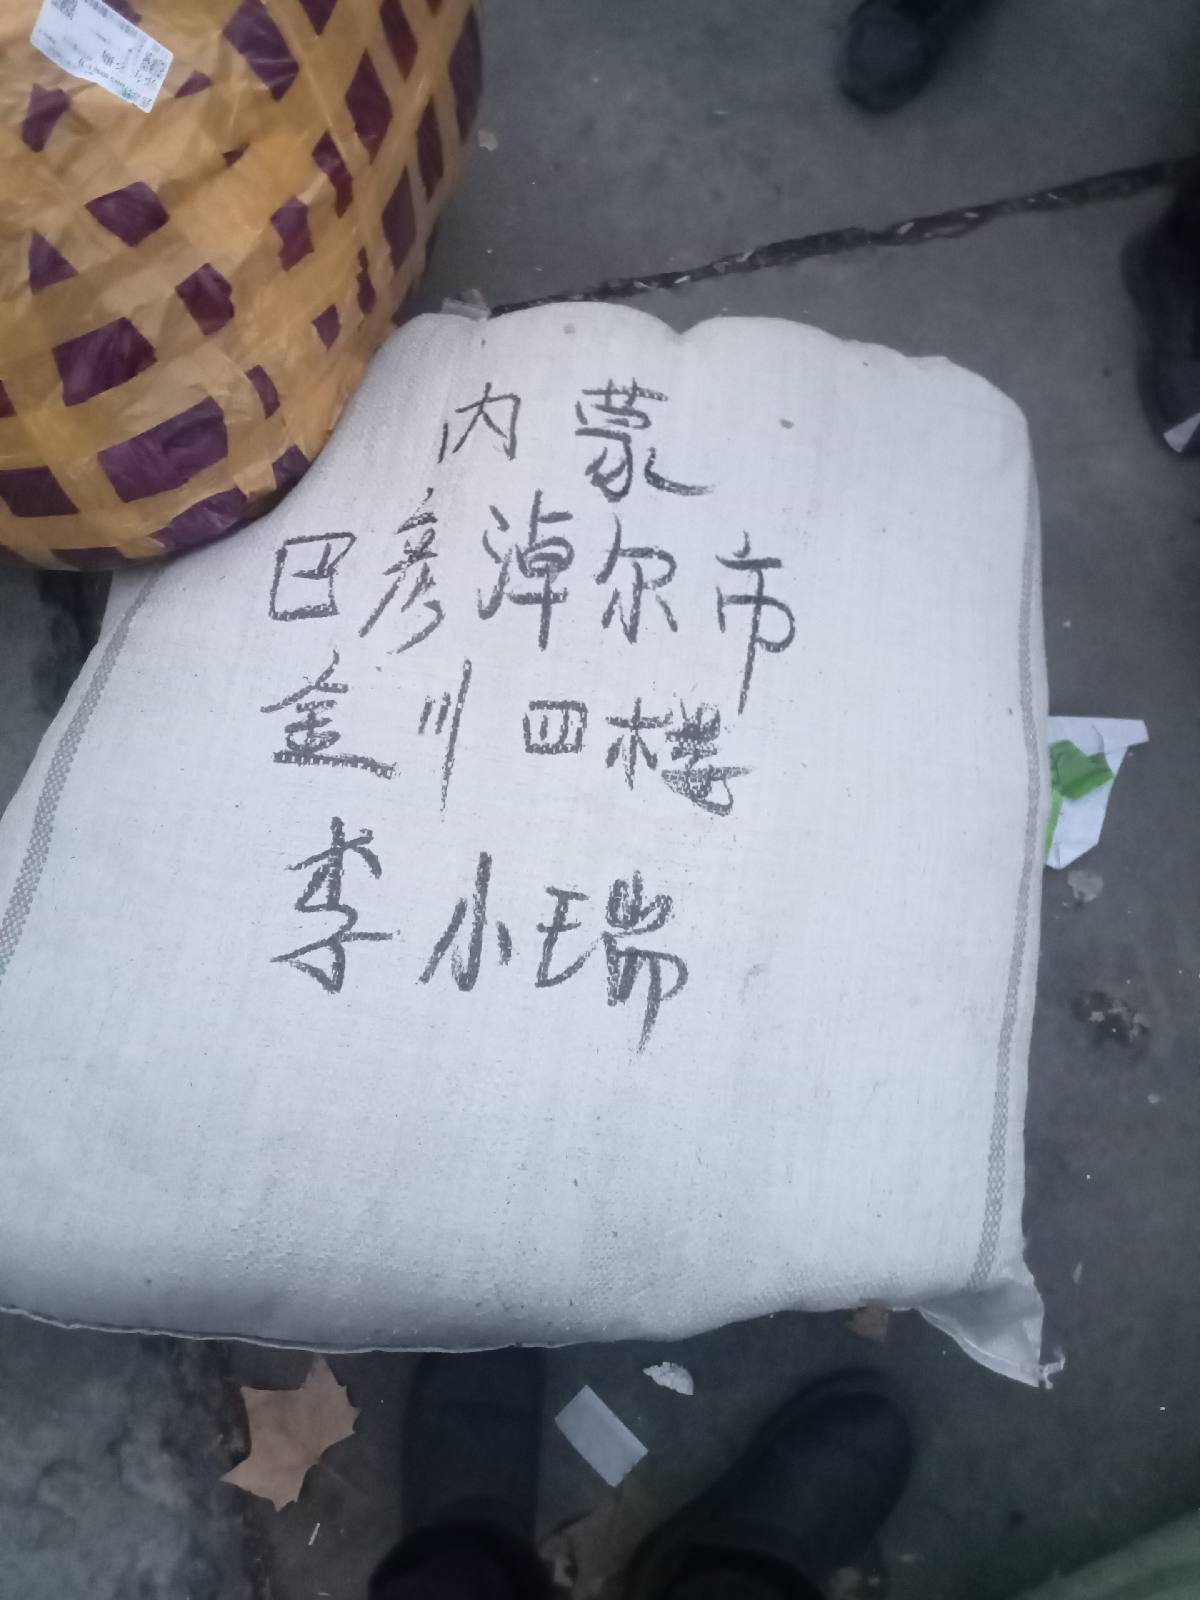 内蒙
巴彦淖尔市
金川四楼
李小瑞